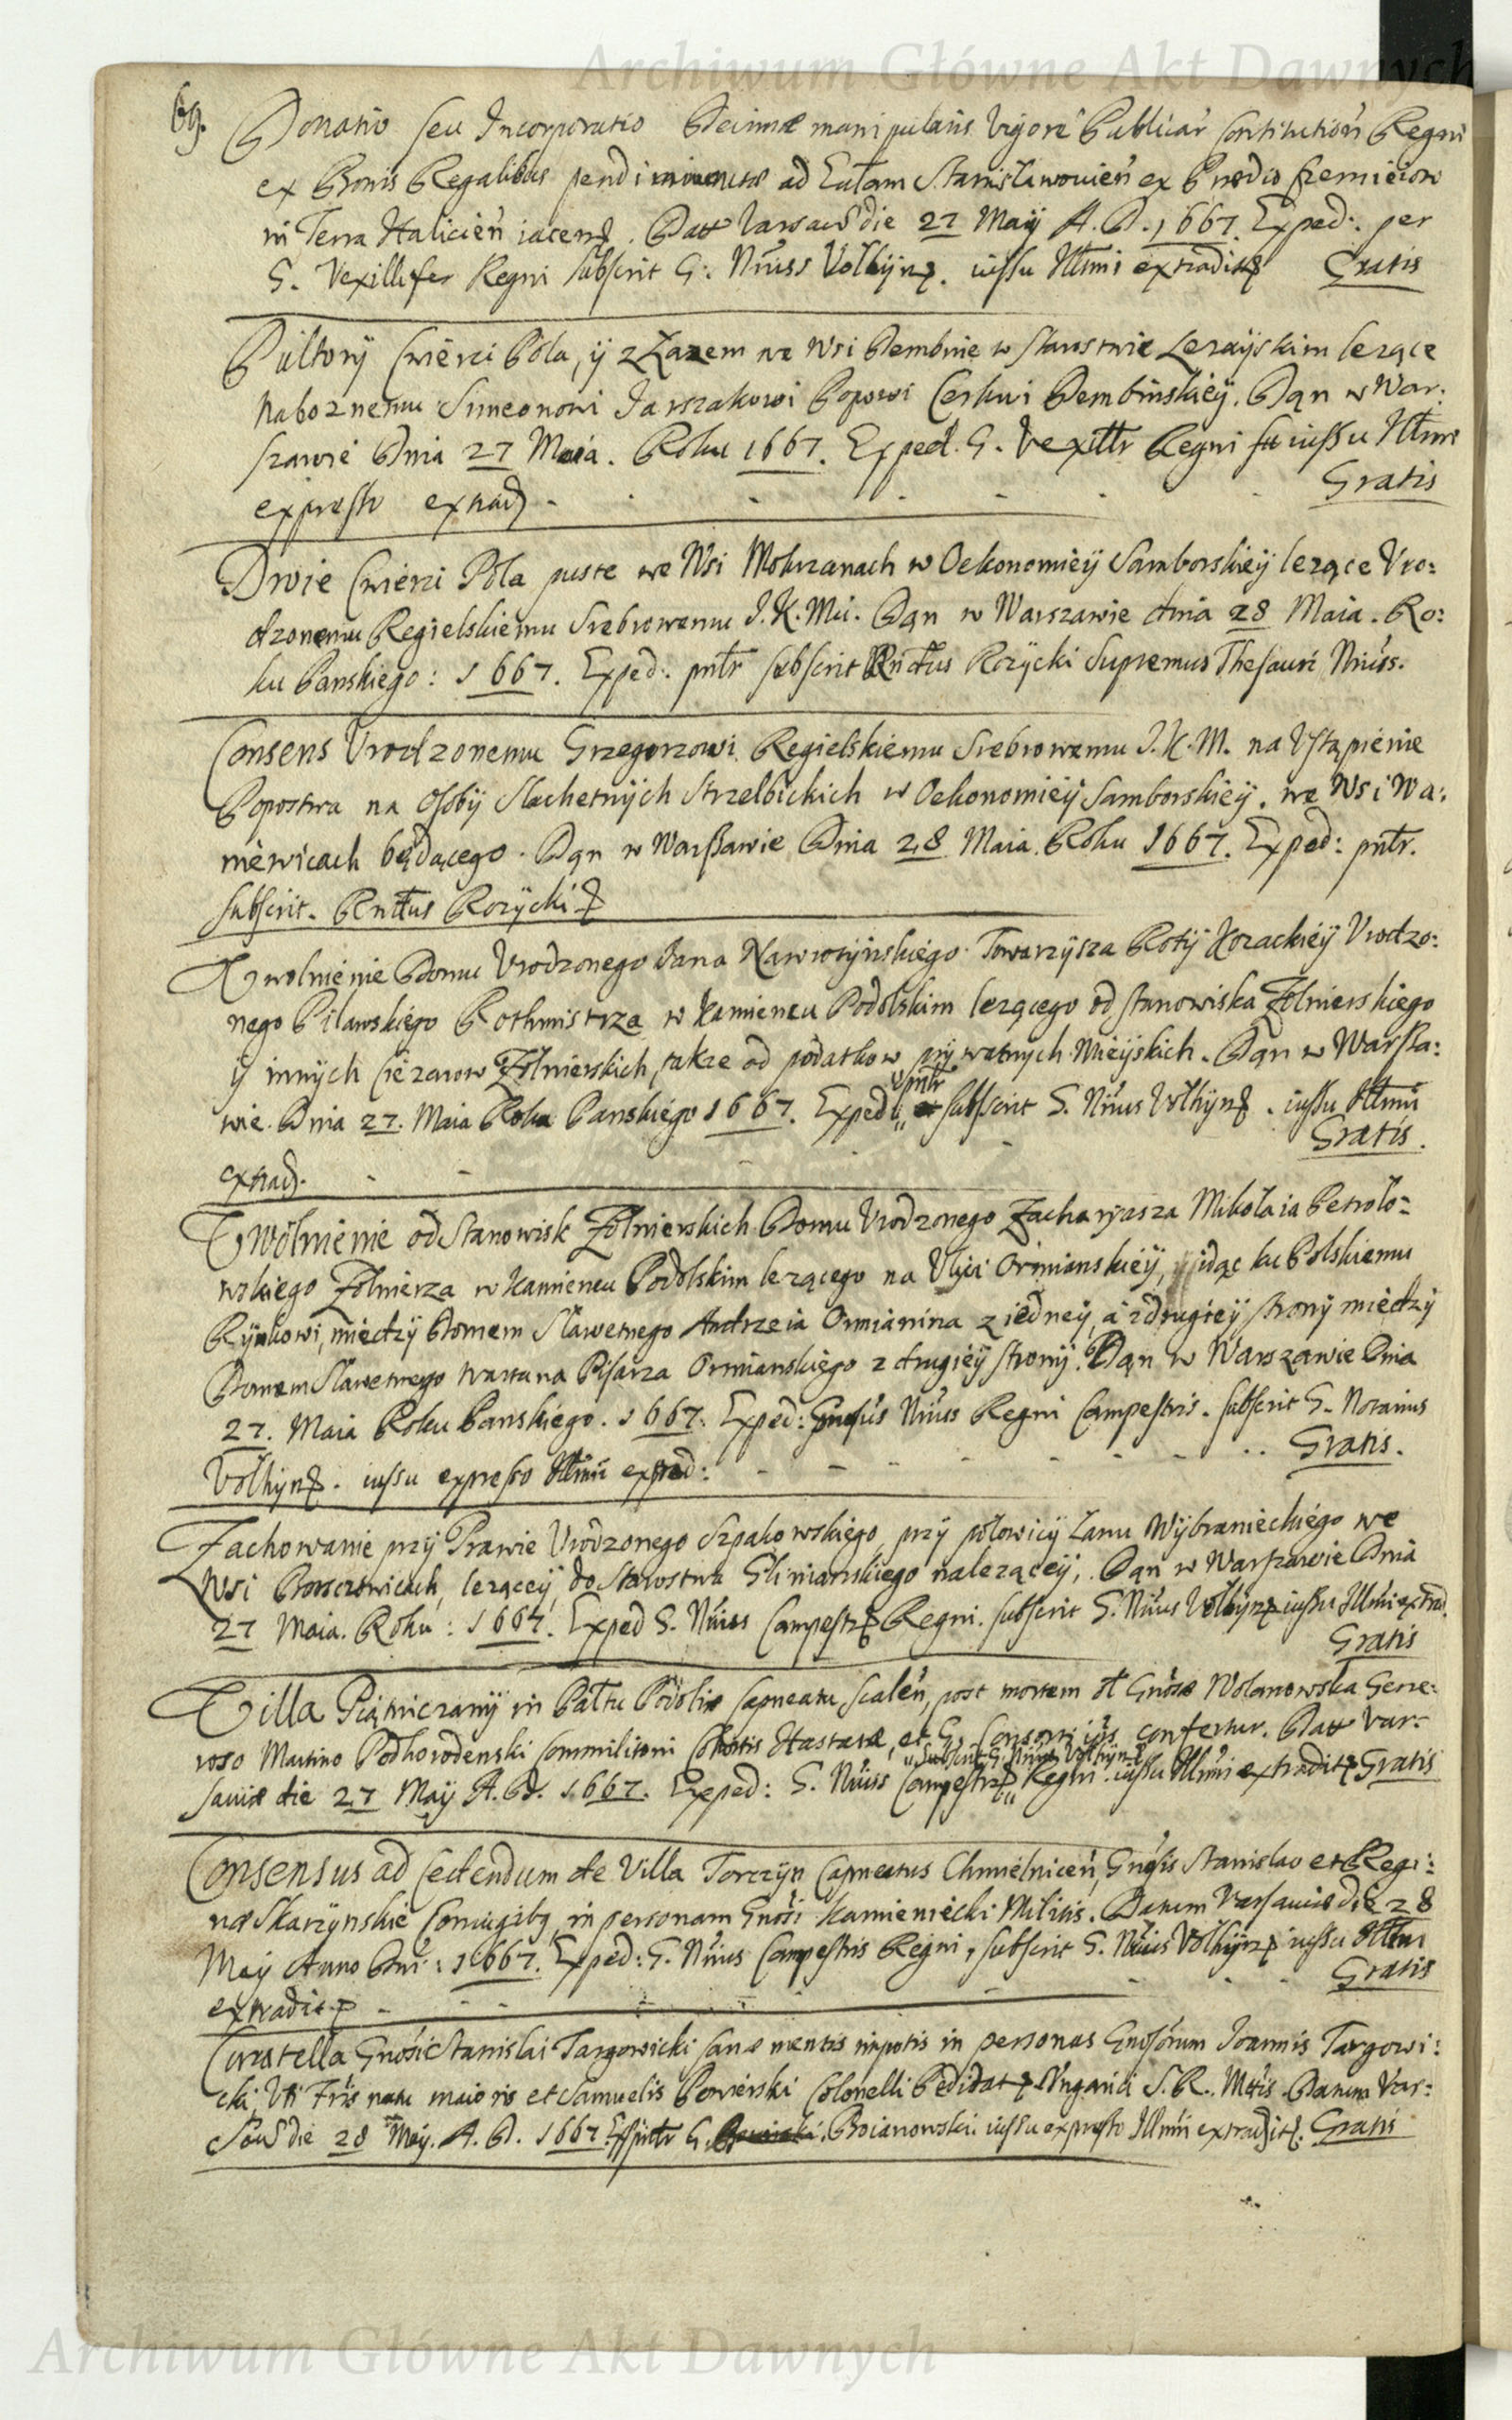 Archiwum Główne Akt Dawnych
69.
Donatio seu Incorporatio Decimæ manipularis vigore Publicar Constitution Regni
ex Bonis Regalibus pend ad Eccłam Stanisławowień ex Prædio
in Terra Halicień iacen. Datt Varsav die 27 Maij A. D. 1667. Exped: per
G. Vexillifer Regni subscrit G: Nřiuss Vołhijn. iussu Illmi extradit Gratis
Pułtorij Cwierci Pola, ij z Łazem we Wsi Dembnie w Starostwie Lezayskim lezące
naboznemu Simeonowi Jarszakowi Popowi Cerkwi Dembinskieÿ. Dąn w War:
szawie Dnia 27 Maia. Roku 1667. Exped. G. Vexillr Regni iussu Illmi
expresso extrad - Gratis
Dwie Cwierci Pola puste we Wsi Mokrzanach w Oekonomieÿ Samborskieÿ lezące Vro:
dzonemu Regielskiemu Srebrowemu J.K.Mci. Dąn w Warszawie dnia 28 Maia. Ro:
ku Panskiego: 1667. Exped: pntr subscrit Rndus Rozÿcki Supremus Thesauri Nriuss.
Consens Vrodzonemu Grzegorzowi Regielskiemu Srebrowemu J.K.M. na Vstąpienie
Popostwa na Osobÿ Slachetnÿch Strzelbickich w Oekonomieÿ Samborskieÿ. we Wsi Wa:
niewicach będącego. Dąn w Warszawie Dnia 28 Maia Roku 1667. Exped: pntr.
subscrit. Rndus Rozÿcki
Vwolnienie Domu Vrodzonego Jana Nawrotÿnskiego Towarzÿsza Rotÿ Kozackieÿ Vrodzo:
nego Pilawskiego Rothmistrza w Kamiencu Podolskim lezącego od stanowiska Zołnierskiego
ij innÿch Ciezarow Zołnierskich, takze od podatkow prÿwatnÿch Mieÿskich. Dąn w Warsza:
wie. Dnia 27. Maia Roku Panskiego 1667. Exped pntr subscrit G. Nrius Vołhijn. iussu Illmi
extrad. Gratis.
Vwolnienie od Stanowisk Zołnierskich Domu Vrodzonego Zacharÿasza Mikołaia Petroło=
wskiego Zołnierza w Kamiencu Podolskim lezącego na Vlici Ormianskieÿ, idąc ku Polskiemu
Rÿnkowi, międzÿ Domem Sławetnego Andrzeia Ormianina z iedneÿ, a z drugieÿ stronÿ międzÿ
Domem Sławetnego Wartana Pisarza Ormianskiego z drugieÿ stronÿ. Dąn w Warszawie Dnia
27. Maia Roku Panskiego. 1667. Exped: Nrius Regni Campestris. subscrit G. Notarius
Vołhijn. iussu expresso Illmi extrad: Gratis.
Zachowanie przÿ Prawie Vrodzonego Szpakowskiego, przÿ połowicÿ Łanu Wÿbranieckiego we
Wsi leząceÿ, do Starostwa Gliniańskiego naleząceÿ. Dąn w Warszawie Dnia
27 Maia. Roku: 1667. Exped G. Nriuss Campestr Regni. subscrit G. Nrius Vołhÿn iussu Illmi extrad.
Gratis
Villa Piątniczanÿ in Pałtu Podoliæ Capneatu Scaleń, post mortem ol Gnosæ Wolanowska Gene:
roso Martino Podhorodenski Commilitoni Cohortis Hastatæ, et G. Consorti ejus confertur. Datt Var:
„Subscrit G. Nrius Vołhijn
saviæ die 27 Maij A.D. 1667. Exped: G. Nriuss Campestr„ Regni. iussu Illmi extradit Gratis
Consensus ad Cedendum de Villa Torczÿn Capneatus Chmielniceń, Gnosis Stanislao et Regi:
næ Skarzÿnskie Coniugibq in personam Gnosi Kamieniecki Militis. Datum Varsaviæ die 28
Maij Anno Dni: 1667. Exped: G. Nrius Campestris Regni, subscrit G. Nrius Vołhijn iussu Illmi
extradit - Gratis
Curatella Gnosi Stanislai Targowicki sanæ mentis impotis in personas Gnosorum Joannis Targowi:
cki, Vti Fris natu maioris et Samuelis Colonelli Peditat Ungarici S.R. Mtis. Datum Var:
sav die 28 Maij. A. D. 1667. G. Boianowski. iussu expresso Illmi extradit. Gratis
Archiwum Główne Akt Dawnych